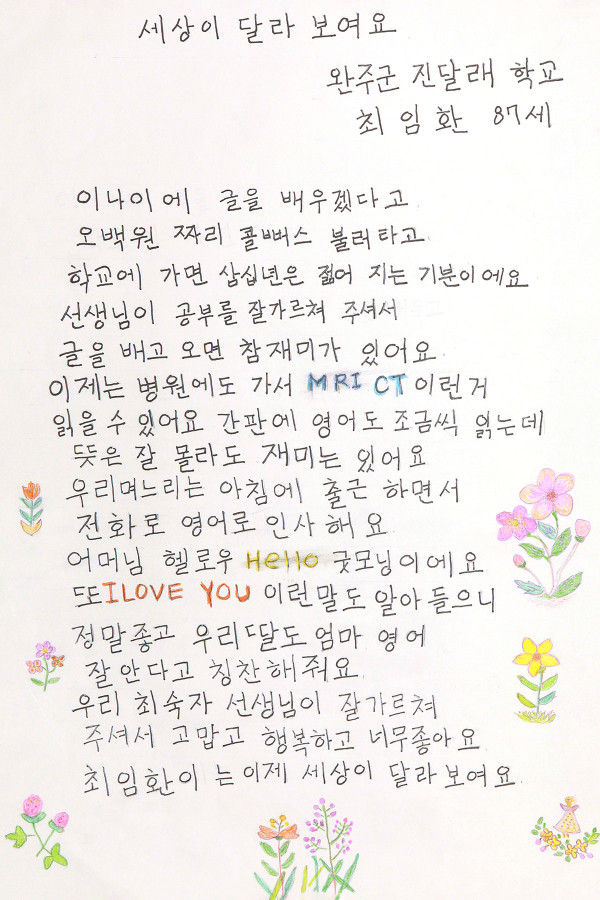 세상이 달라 보여요
완주군 진달래 학교
최임환 87세
이나이에 글을 배우겠다고
오백원 짜리 콜뻐스 불러타고
학교에 가면 삼십년은 젊어 지는 기분이에요
선생님이 공부를 잘가르쳐 주셔서
글을 배고 오면 참재미가 있어요
이제는 병원에도 가서 MRI CT 이런거
읽을 수 있어요 간판에 영어도 조금씩 읽는데
뜻은 잘 몰라도 재미는 있어요
우리며느리는 아침에 출근 하면서
전화로 영어로 인사 해요
어머님 헬로우 Hello 굿모닝이에요
또 I LOVE YOU 이런말도 알아 들으니
정말좋고 우리딸도 엄마 영어
잘안다고 칭찬해줘요
우리 최숙자 선생님이 잘가르쳐
주셔서 고맙고 행복하고 너무좋아요
최임환이 는 이제 세상이 달라보여요